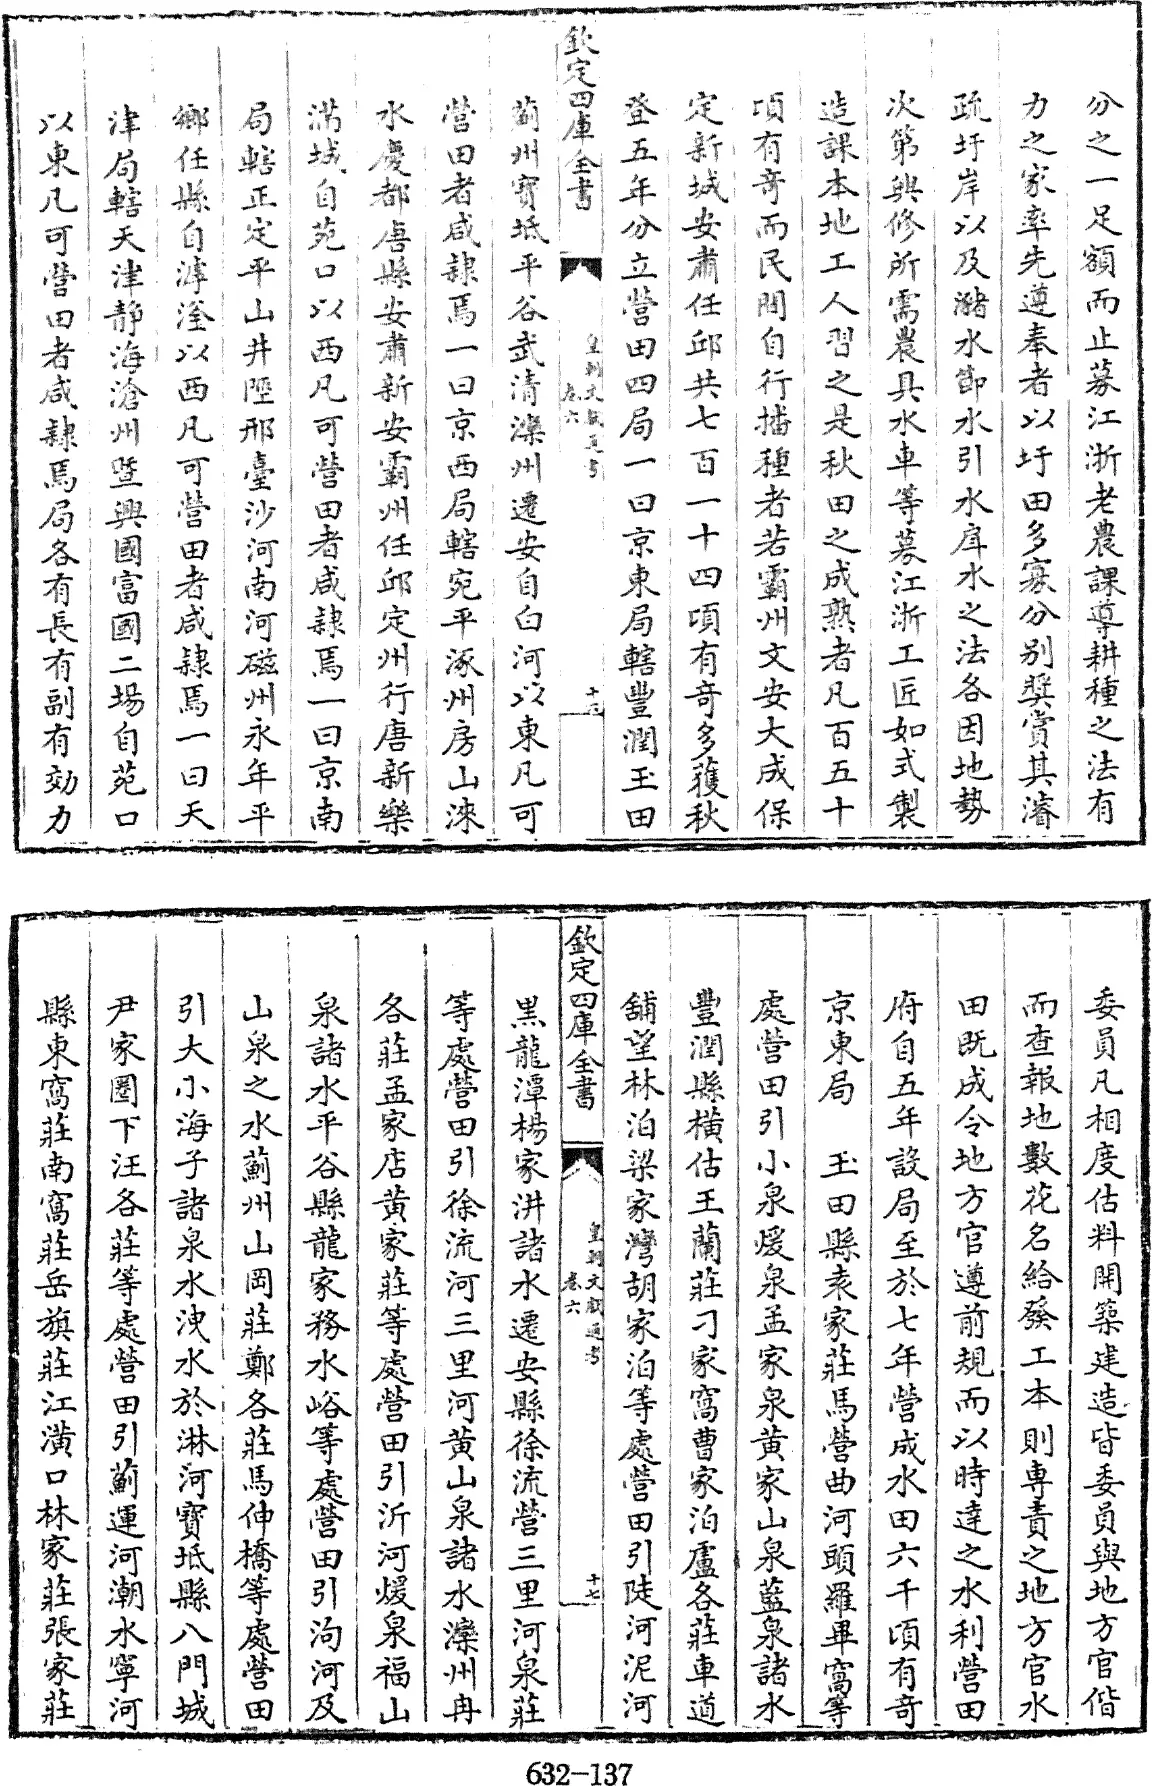 分之一足額而止募江浙老農課導耕種之法有
力之家率先遵奉者以圩田多寡分別奬賞其濬
疏圩岸以及瀦水節水引水戽水之法各因地勢
次第興修所需農具水車等募江浙工匠如式製
造課本地工人習之是秋田之成熟者凡百五十
頃有奇而民間自行播種者若霸州文安大成保
定新城安肅任邱共七百一十四頃有奇多穫秋
登五年分立營田四局一曰京東局轄豐潤玉田
欽定四庫全書
皇朝文獻通考
卷六
薊州寶坻平谷武清灤州遷安自白河以東凡可
營田者咸隷焉一曰京西局轄宛平涿州房山淶
水慶都唐縣安肅新安霸州任邱定州行唐新樂
滿城自苑口以西凡可營田者咸隷焉一曰京南
局轄正定平山井陘邢臺沙河南河磁州永年平
鄉任縣自滹滏以西凡可營田者咸隷焉一曰天
津局轄天津靜海滄州暨興國富國二場自苑口
以東凡可營田者咸隷焉局各有長有副有効力
委員凡相度估料開築建造皆委員與地方官偕
而查報地數花名給發工本則専責之地方官水
田既成令地方官遵前規而以時達之水利營田
府自五年設局至於七年營成水田六千頃有奇
京東局 玉田縣袁家莊馬營曲河頭羅畢窩等
處營田引小泉煖泉孟家泉黃家山泉藍泉諸水
豐潤縣橫估王蘭莊刁家窩曹家泊盧各莊車道
舖望林泊梁家灣胡家泊等處營田引陡河泥河
欽定四庫全書
皇朝文獻通考
卷六
十七
黑龍潭楊家汫諸水遷安縣徐流營三里河泉莊
等處營田引徐流河三里河黃山泉諸水灤州冉
各莊孟家店黃家莊等處營田引沂河煖泉福山
泉諸水平谷縣龍家務水峪等處營田引泃河及
山泉之水薊州山岡莊鄭各莊馬伸橋等處營田
引大小海子諸泉水洩水於淋河寶坻縣八門城
尹家圈下汪各莊等處營田引薊運河潮水寧河
縣東窩莊南窩莊岳旗莊江潢口林家莊張家莊
632-137